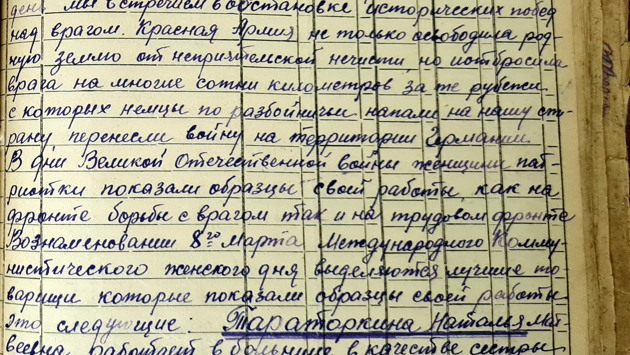 день мы встречаем в обстановке исторических побед
над врагом. Красная Армия не только освободила род-
ную землю от неприятельской нечисти но и отбросила
врага на многие сотни километров за те рубежи
с которых немцы по разбойничьи напали на нашу ст-
рану перенесли войну на территории Германии.
В дни Великой Отечественной войны женщины пат-
риотки показали образцы своей работы, как на
фронте борьбы с врагом так и на трудовом фронте
Вознаменовании 8го Марта Международного Комму-
нистического женского дня выделяются лучшие то-
варищи которые показали образцы своей работы
это следующие: Тараторкина Наталья Мат-
веевна работает в больнице в качестве сестры